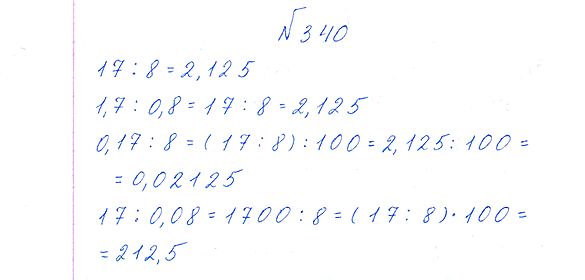 № 340
17 : 8 = 2,125
1,7 : 0,8 = 17 : 8 = 2,125
0,17 : 8 = (17 : 8) : 100 = 2,125 : 100 =
= 0,02125
17 : 0,08 = 1700 : 8 = (17 : 8) · 100 =
= 212,5